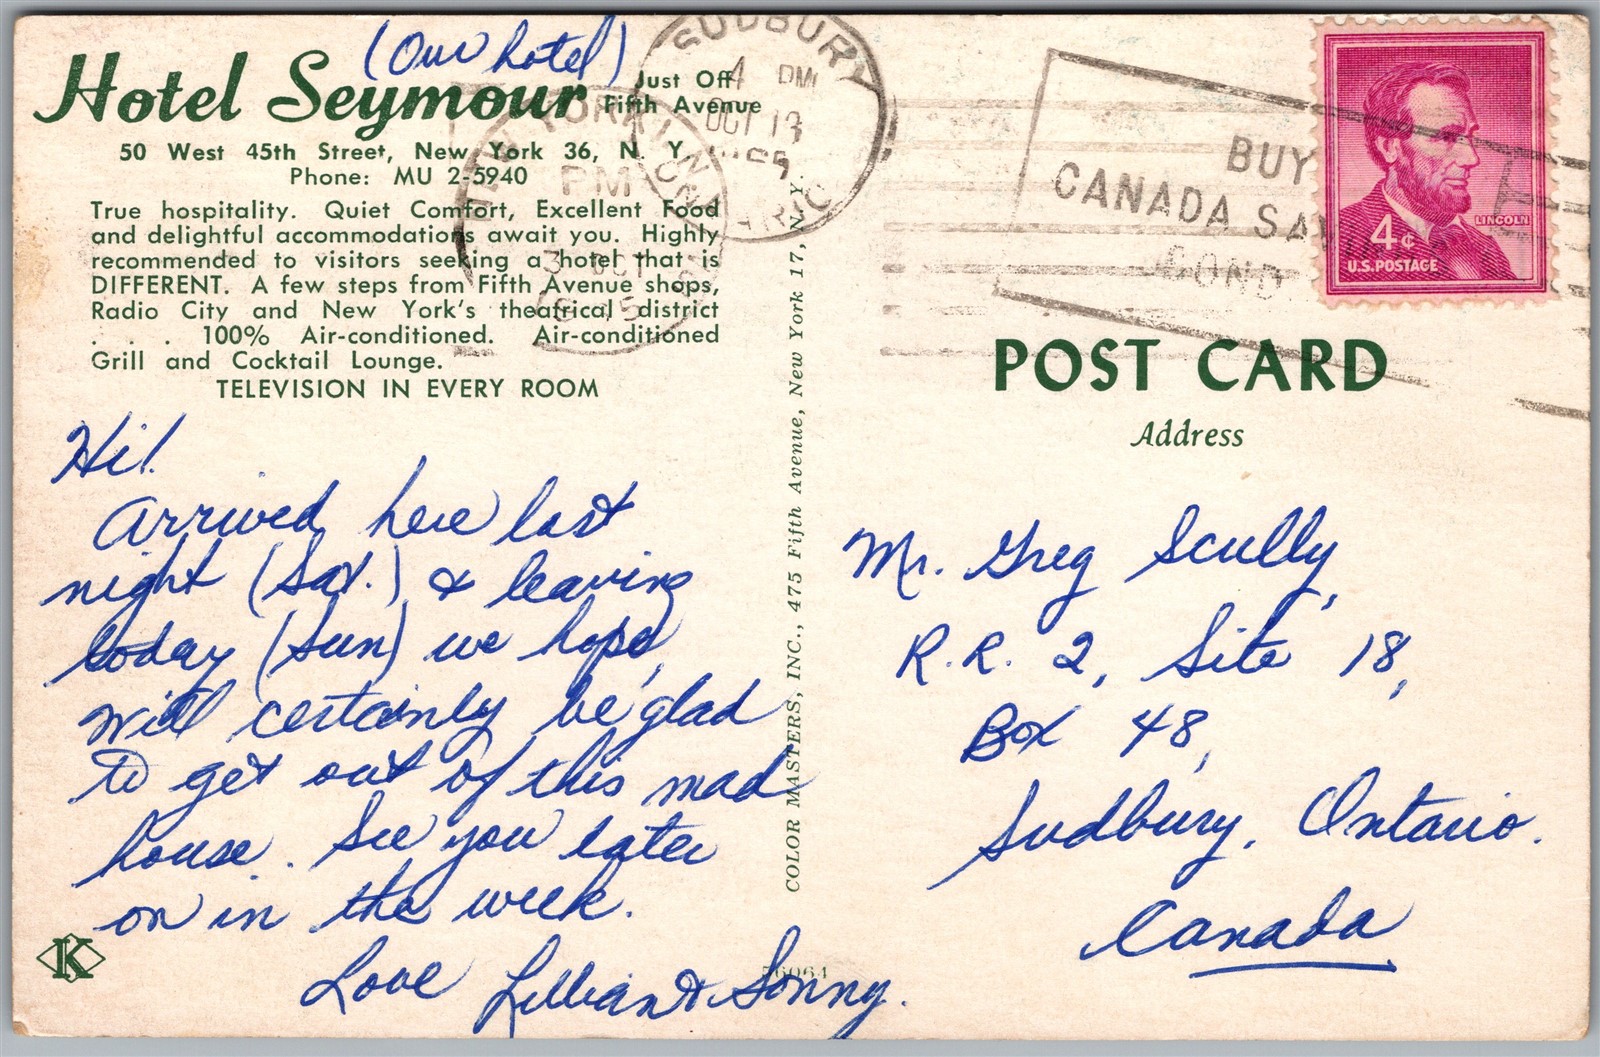 (Our hotel)
Hotel Seymour
Just Off
Fifth Avenue
50 West 45th Street, New York 36, N. Y.
Phone: MU 2-5940
True hospitality. Quiet Comfort, Excellent Food
and delightful accommodations await you. Highly
recommended to visitors seeking a hotel that is
DIFFERENT. A few steps from Fifth Avenue shops,
Radio City and New York's theatrical district
. . . 100% Air-conditioned. Air-conditioned
Grill and Cocktail Lounge.
TELEVISION IN EVERY ROOM
Hi!
Arrived here last
night (Sat.) & leaving
today (Sun) we hope,
Will certainly be glad
to get out of this mad
house. See you later
on in the week.
Love Lillian & Sonny.
K
56064
COLOR MASTERS, INC., 475 Fifth Avenue, New York 17, N. Y.
SUDBURY
4 PM
OCT 13
ONTARIO
PM
OCT
BUY
CANADA SAVINGS
4¢
LINCOLN
U.S. POSTAGE
POST CARD
Address
Mr. Greg Scully,
R.R. 2, Site 18,
Box 48,
Sudbury, Ontario.
Canada